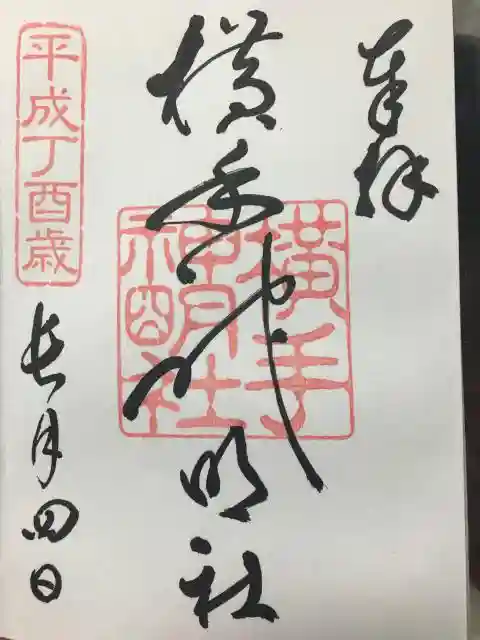 奉拝
横手神明社
横手
神明社
平成丁酉歳
長月四日